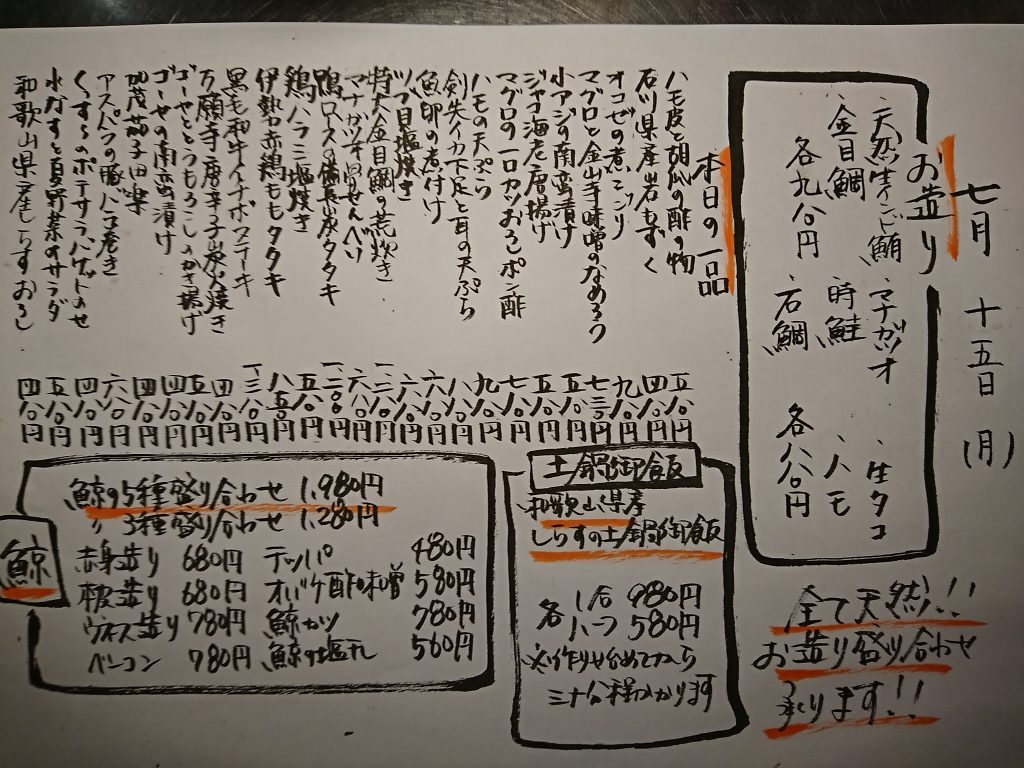 七月 十五日 (月)
お造り
、天然生インド鮪 、マナガツオ 、生タコ
、金目鯛 、時鮭 、ハモ
各九八〇円 、石鯛 各八八〇円
全て天然!!
お造り盛り合わせ
承ります!!
本日の一品
ハモ皮と胡瓜の酢の物 五八〇円
石川県産岩もずく 四八〇円
オコゼの煮こごり 九八〇円
マグロと金山寺味噌のなめろう
小アジの南蛮漬け 五八〇円
ジャコ海老唐揚げ 五八〇円
マグロの一口カツおろしポン酢
ハモの天ぷら
剣先イカ下足と耳の天ぷら
魚卵の煮付け
ツブ貝塩焼き
特大金目鯛の荒炊き
マナガツオ骨せんべい
鴨ロースの備長炭タタキ
鶏ハラミ塩焼き
伊勢赤鶏ももタタキ
黒毛和牛イチボステーキ
万願寺唐辛子炭火焼き
ゴーヤととうもろこしのかき揚げ
ゴーヤの南蛮漬け
加茂茄子田楽
アスパラの豚バラ巻き
くすくすのポテサラバゲットのせ
水なすと夏野菜のサラダ 五八〇円
和歌山県産しらすおろし 四八〇円
土鍋御飯
和歌山県産
しらすの土鍋御飯
各 1合 980円
ハーフ 580円
※作り始めてから
三十分程かかります
鯨
鯨の5種盛り合わせ 1,980円
〃 3種盛り合わせ 1,280円
赤身造り 680円 テッパ 480円
本皮造り 680円 オバケ酢味噌 580円
ウネス造り 780円 鯨カツ 780円
ベーコン 780円 鯨の塩タレ 560円